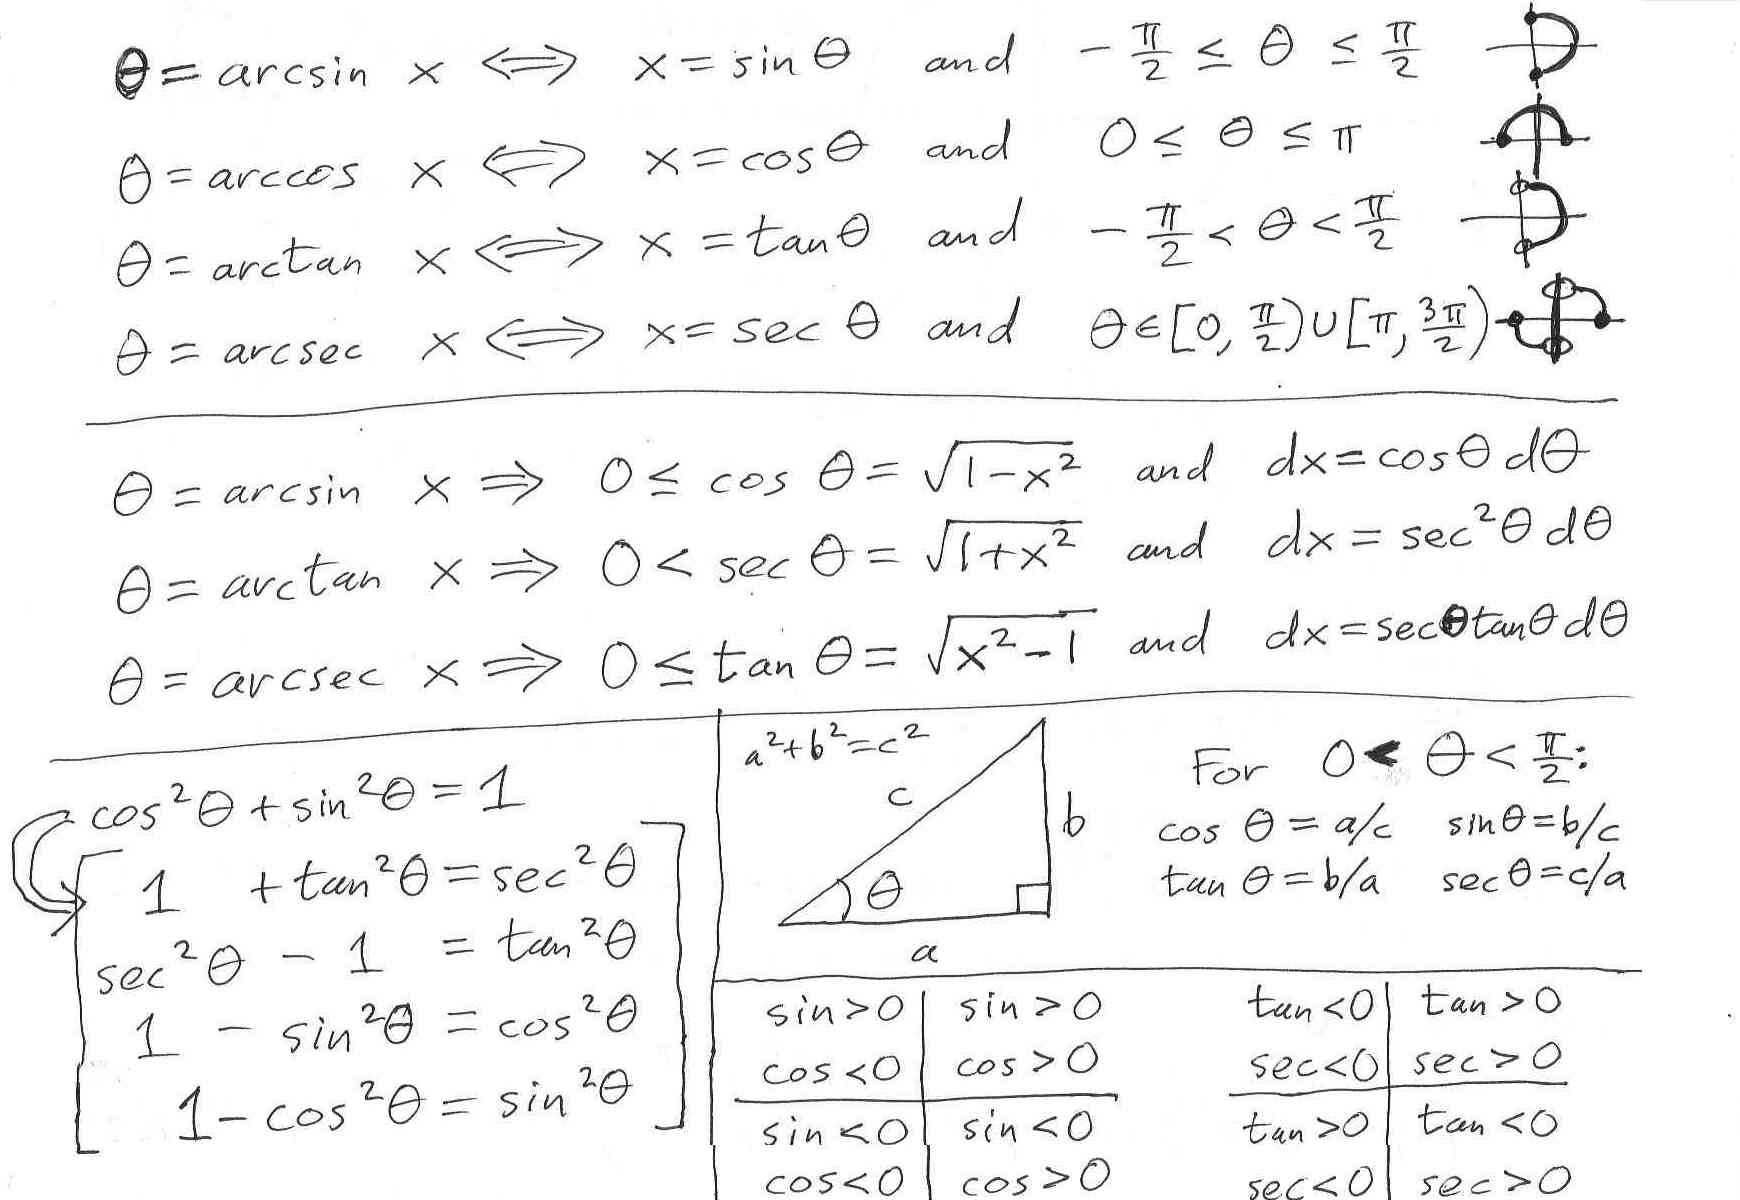 θ = arcsin x ⟺ x = sin θ and -π/2 ≤ θ ≤ π/2
θ = arccos x ⟺ x = cos θ and 0 ≤ θ ≤ π
θ = arctan x ⟺ x = tan θ and -π/2 < θ < π/2
θ = arcsec x ⟺ x = sec θ and θ ∈ [0, π/2) ∪ [π, 3π/2)
θ = arcsin x ⇒ 0 ≤ cos θ = √(1-x²) and dx = cos θ dθ
θ = arctan x ⇒ 0 < sec θ = √(1+x²) and dx = sec²θ dθ
θ = arcsec x ⇒ 0 ≤ tan θ = √(x²-1) and dx = secθ tanθ dθ
cos²θ + sin²θ = 1
1 + tan²θ = sec²θ
sec²θ - 1 = tan²θ
1 - sin²θ = cos²θ
1 - cos²θ = sin²θ
a² + b² = c²
c
b
θ
a
For 0 < θ < π/2:
cos θ = a/c sin θ = b/c
tan θ = b/a sec θ = c/a
sin>0 sin>0
cos<0 cos>0
sin<0 sin<0
cos<0 cos>0
tan<0 tan>0
sec<0 sec>0
tan>0 tan<0
sec<0 sec>0